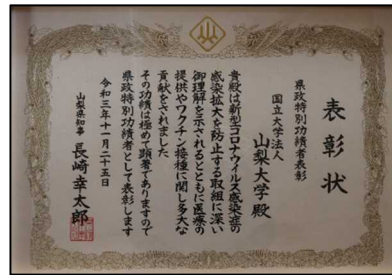 表彰状
県政特別功績者表彰
国立大学法人
山梨大学殿
貴殿は新型コロナウイルス感染症の
感染拡大を防止する取組に深い
御理解を示されるとともに医療の
提供やワクチン接種に関し多大な
貢献をされました
その功績は極めて顕著でありますので
県政特別功績者として表彰します
令和三年十一月二十五日
山梨県知事 長崎幸太郎